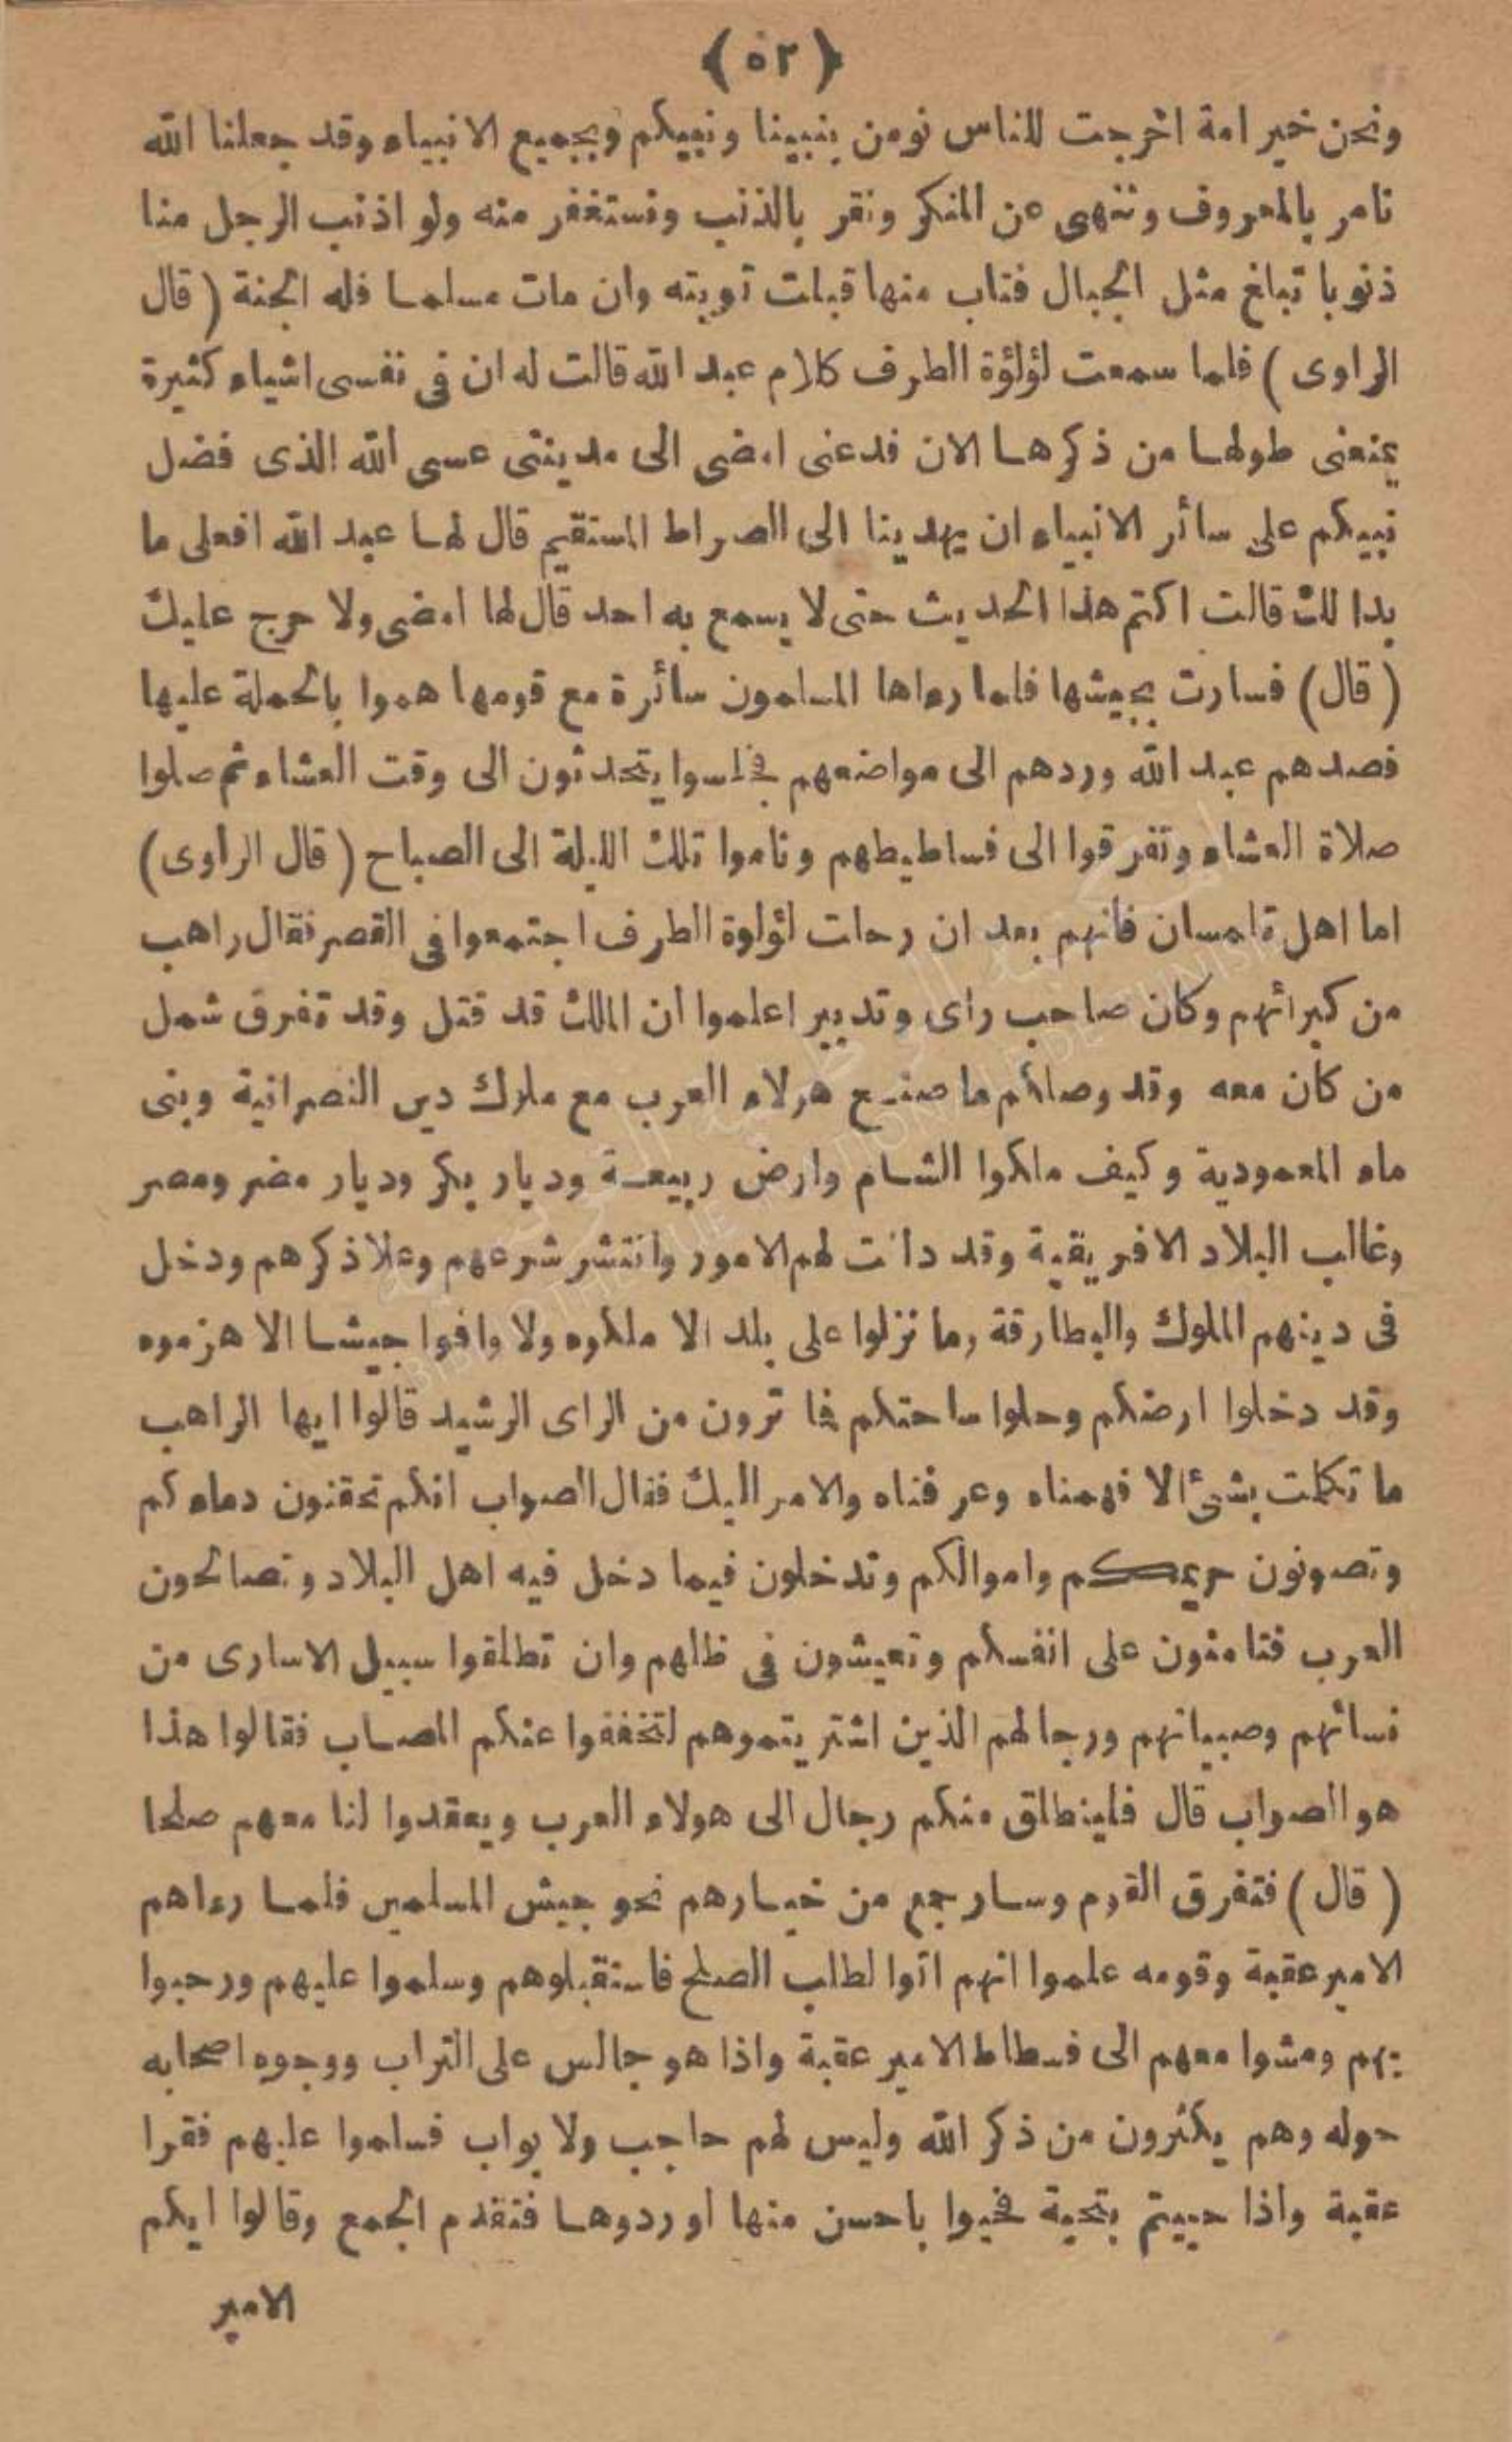 ﴿٥٢﴾
ونحن خير امة اخرجت للناس نومن بنبينا ونبيكم وبجميع الانبياء وقد جعلنا الله
نامر بالمعروف وننهى عن المنكر ونقر بالذنب ونستغفر منه ولو اذنب الرجل منا
ذنوبا تبلغ مثل الجبال فتاب منها قبلت توبته وان مات مسلما فله الجنة (قال
الراوى) فلما سمعت لؤلؤة الطرف كلام عبد الله قالت له ان فى نفسى اشياء كثيرة
يمنعنى طولها من ذكرها الان فدعنى امضى الى مدينتى عسى الله الذى فضل
نبيكم على سائر الانبياء ان يهدينا الى الصراط المستقيم قال لها عبد الله افعلى ما
بدا لك قالت اكتم هذا الحديث حتى لا يسمع به احد قال لها امضى ولا حرج عليك
(قال) فسارت بجيشها فلما رءاها المسلمون سائرة مع قومها هموا بالحملة عليها
فصدهم عبد الله وردهم الى مواضعهم فجلسوا يتحدثون الى وقت العشاء ثم صلوا
صلاة العشاء وتفرقوا الى فساطيطهم وناموا تلك الليلة الى الصباح (قال الراوى)
اما اهل تلمسان فانهم بعد ان رحلت لؤلوة الطرف اجتمعوا فى القصر فقال راهب
من كبرائهم وكان صاحب راى وتدبير اعلموا ان الملك قد قتل وقد تفرق شمل
من كان معه وقد وصلكم ما صنع هولاء العرب مع ملوك دين النصرانية وبنى
ماء المعمودية وكيف ملكوا الشام وارض ربيعة وديار بكر وديار مضر ومصر
وغالب البلاد الافريقية وقد دانت لهم الامور وانتشر شرعهم وعلا ذكرهم ودخل
فى دينهم الملوك والبطارقة وما نزلوا على بلد الا ملكوه ولا وافوا جيشا الا هزموه
وقد دخلوا ارضكم وحلوا ساحتكم فما ترون من الراى الرشيد قالوا ايها الراهب
ما تكلمت بشئ الا فهمناه وعرفناه والامر اليك فقال الصواب انكم تحقنون دماءكم
وتصونون حريمكم واموالكم وتدخلون فيما دخل فيه اهل البلاد وتصالحون
العرب فتامنون على انفسكم وتعيشون فى ظلهم وان تطلقوا سبيل الاسارى من
نسائهم وصبيانهم ورجالهم الذين اشتريتموهم لتخففوا عنكم المصاب فقالوا هذا
هو الصواب قال فلينطلق منكم رجال الى هولاء العرب ويعقدوا لنا معهم صلحا
(قال) فتفرق القوم وسار جمع من خيارهم نحو جيش المسلمين فلما رءاهم
الامير عقبة وقومه علموا انهم اتوا لطلب الصلح فاستقبلوهم وسلموا عليهم ورحبوا
بهم ومشوا معهم الى فسطاط الامير عقبة واذا هو جالس على التراب ووجوه اصحابه
حوله وهم يكثرون من ذكر الله وليس لهم حاجب ولا بواب فسلموا عليهم فقرا
عقبة واذا حييتم بتحية فحيوا باحسن منها او ردوها فتقدم الجمع وقالوا ايكم
الامير